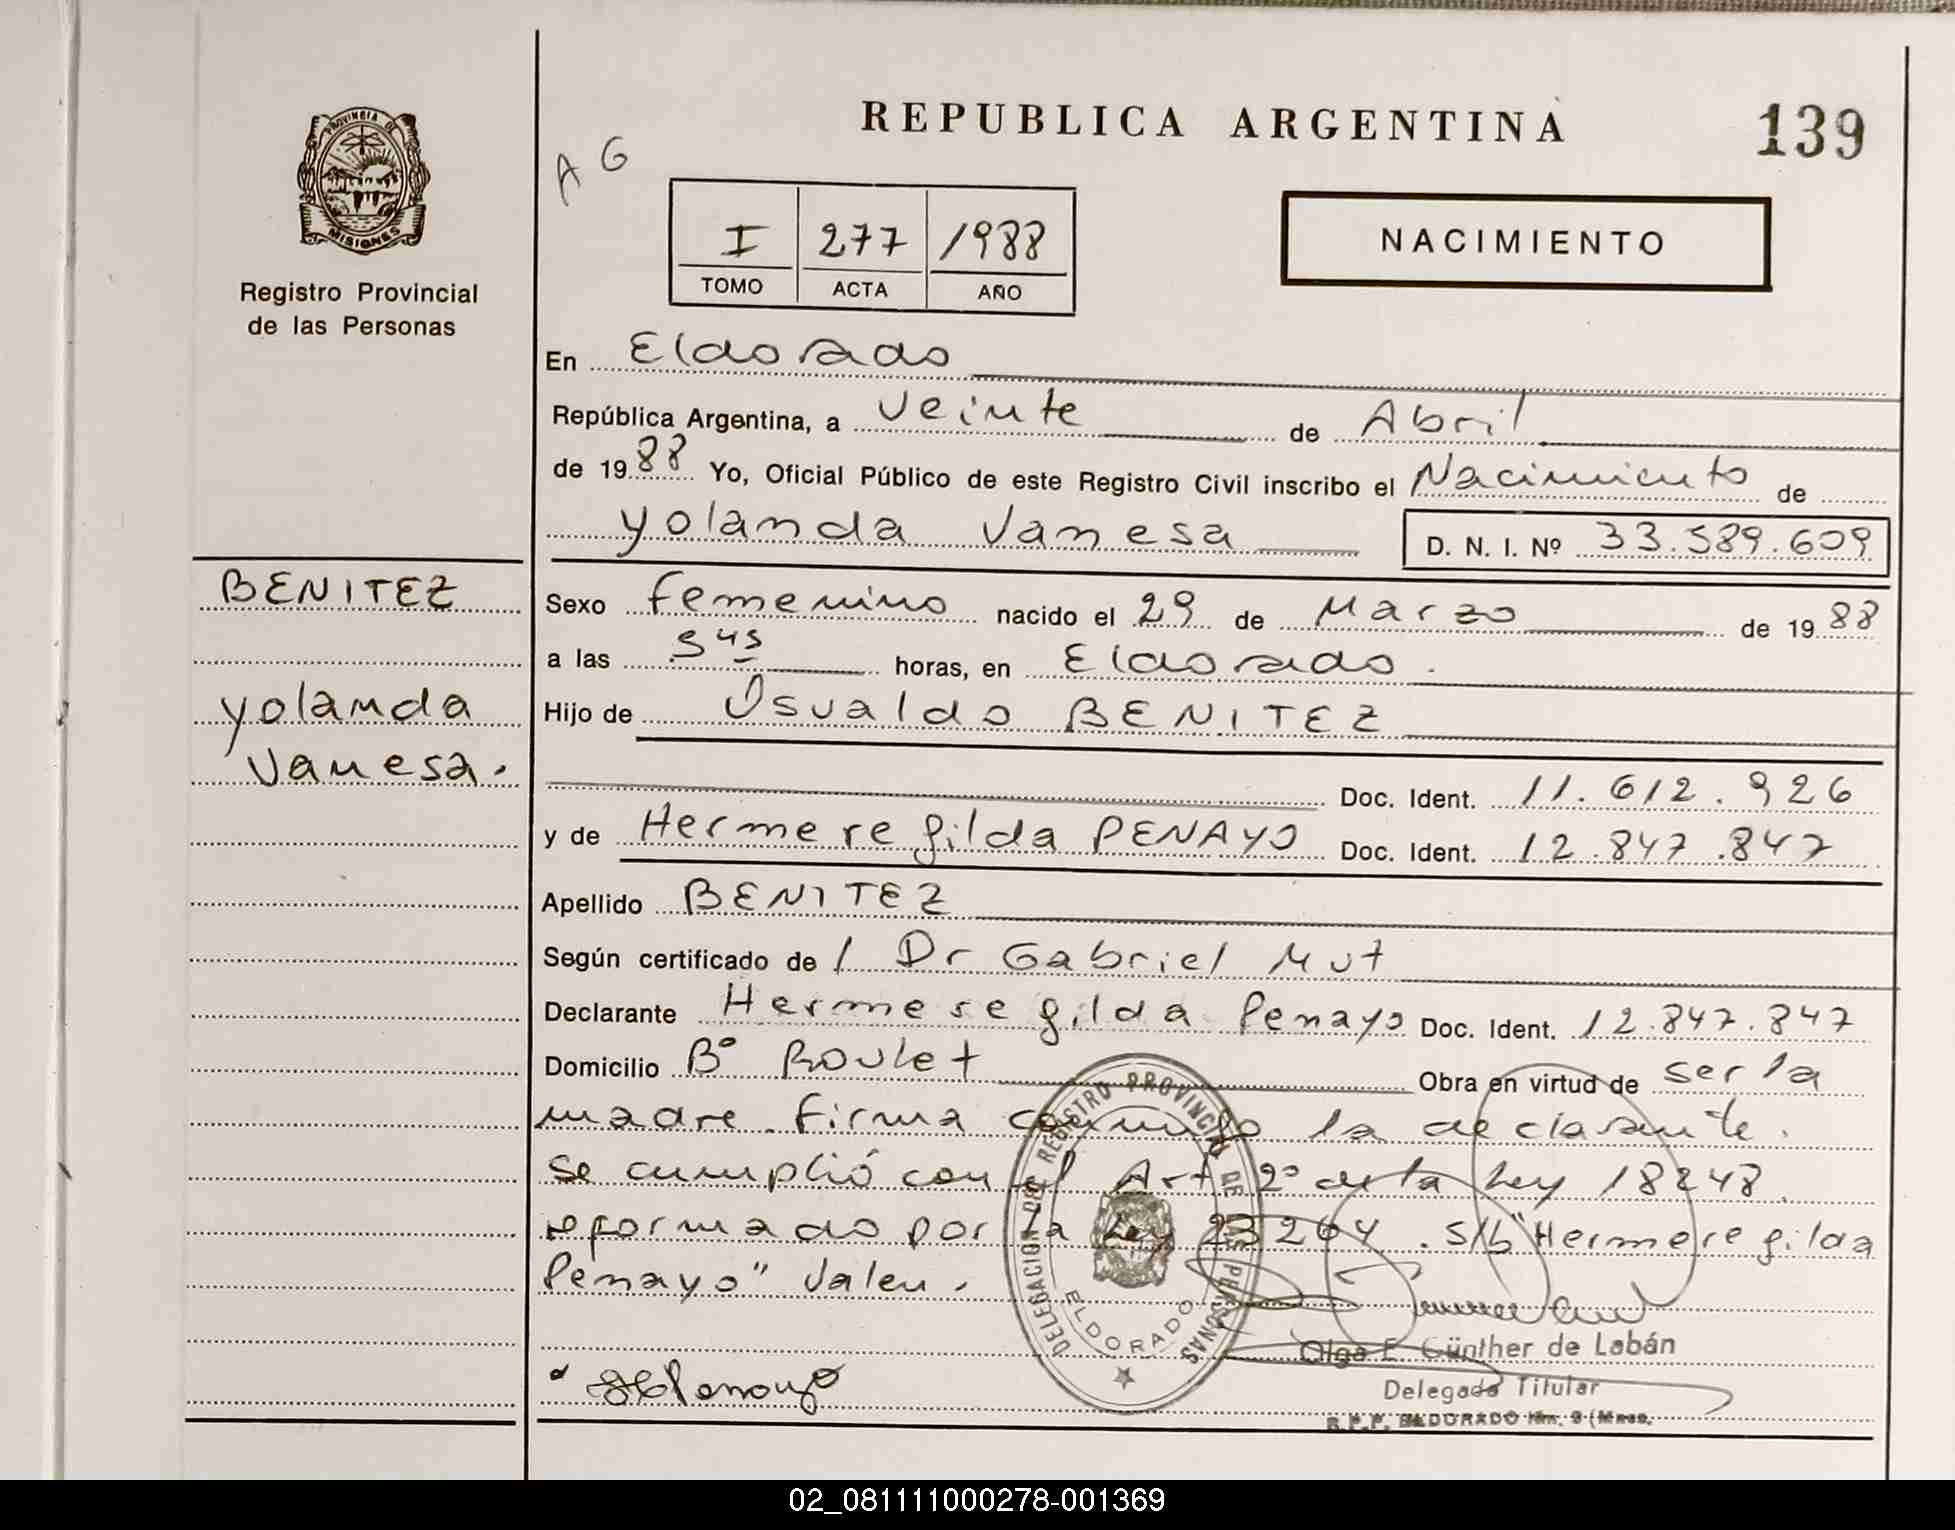 PROVINCIA DE
MISIONES
Registro Provincial
de las Personas
BENITEZ
yolanda
Vanesa.
REPUBLICA ARGENTINA
139
A G
I 277 1988
TOMO ACTA AÑO
NACIMIENTO
En Eldorado
República Argentina, a Veinte de Abril
de 1988 Yo, Oficial Público de este Registro Civil inscribo el Nacimiento de
yolanda Vanesa D. N. I. Nº 33.589.609
Sexo femenino nacido el 29 de Marzo de 1988
a las 5 45 horas, en Eldorado.
Hijo de Osvaldo BENITEZ
Doc. Ident. 11.612.926
y de Hermeregilda PENAYO Doc. Ident. 12.847.847
Apellido BENITEZ
Según certificado de / Dr Gabriel Mut
Declarante Hermeregilda Penayo Doc. Ident. 12.847.847
Domicilio Bº Roulet Obra en virtud de ser la
madre. Firma conmigo la declarante.
Se cumplió con el Art 2º de la Ley 18248
reformado por la Ley 23264. s/b "Hermeregilda
Penayo" Valen.
DELEGACION DEL REGISTRO PROVINCIAL DE LAS PERSONAS
ELDORADO
Olga E. Günther de Labán
Delegada Titular
R.P.P. ELDORADO
02_081111000278-001369